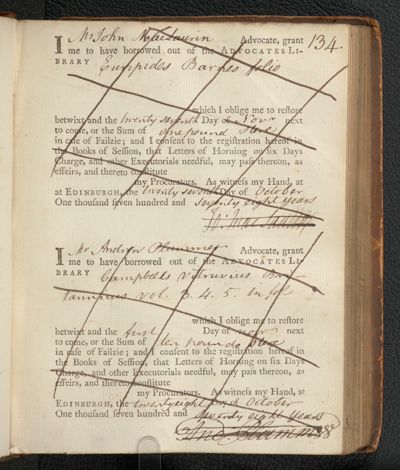 134.
I Mr John Maclaurin Advocate, grant
me to have borrowed out of the ADVOCATES LI-
BRARY Euripides Barnes folio
which I oblige me to restore
betwixt and the twenty seventh Day of Novr next
to come, or the Sum of one pound Sterl
in case of Failzie; and I consent to the registration hereof in
the Books of Session, that Letters of Horning on six Days
Charge, and other Executorials needful, may pass thereon, as
effeirs, and thereto constitute
my Procurators. As witness my Hand, at
at EDINBURGH, the twenty seventh Day of October
One thousand seven hundred and seventy eight years
Jo: Maclaurin
I Mr Andrew Plummer Advocate, grant
me to have borrowed out of the ADVOCATES LI-
BRARY Campbells Vitruvius Brit
tannicus vol. 3. 4. 5. in fol
which I oblige me to restore
betwixt and the first Day of next
to come, or the Sum of ten pounds Sterl
in case of Failzie; and I consent to the registration hereof in
the Books of Session, that Letters of Horning on six Days
Charge, and other Executorials needful, may pass thereon, as
effeirs, and thereto constitute
my Procurators. As witness my Hand, at
EDINBURGH, the twentyeight Day of October
One thousand seven hundred and seventy eight years
And: Plummer